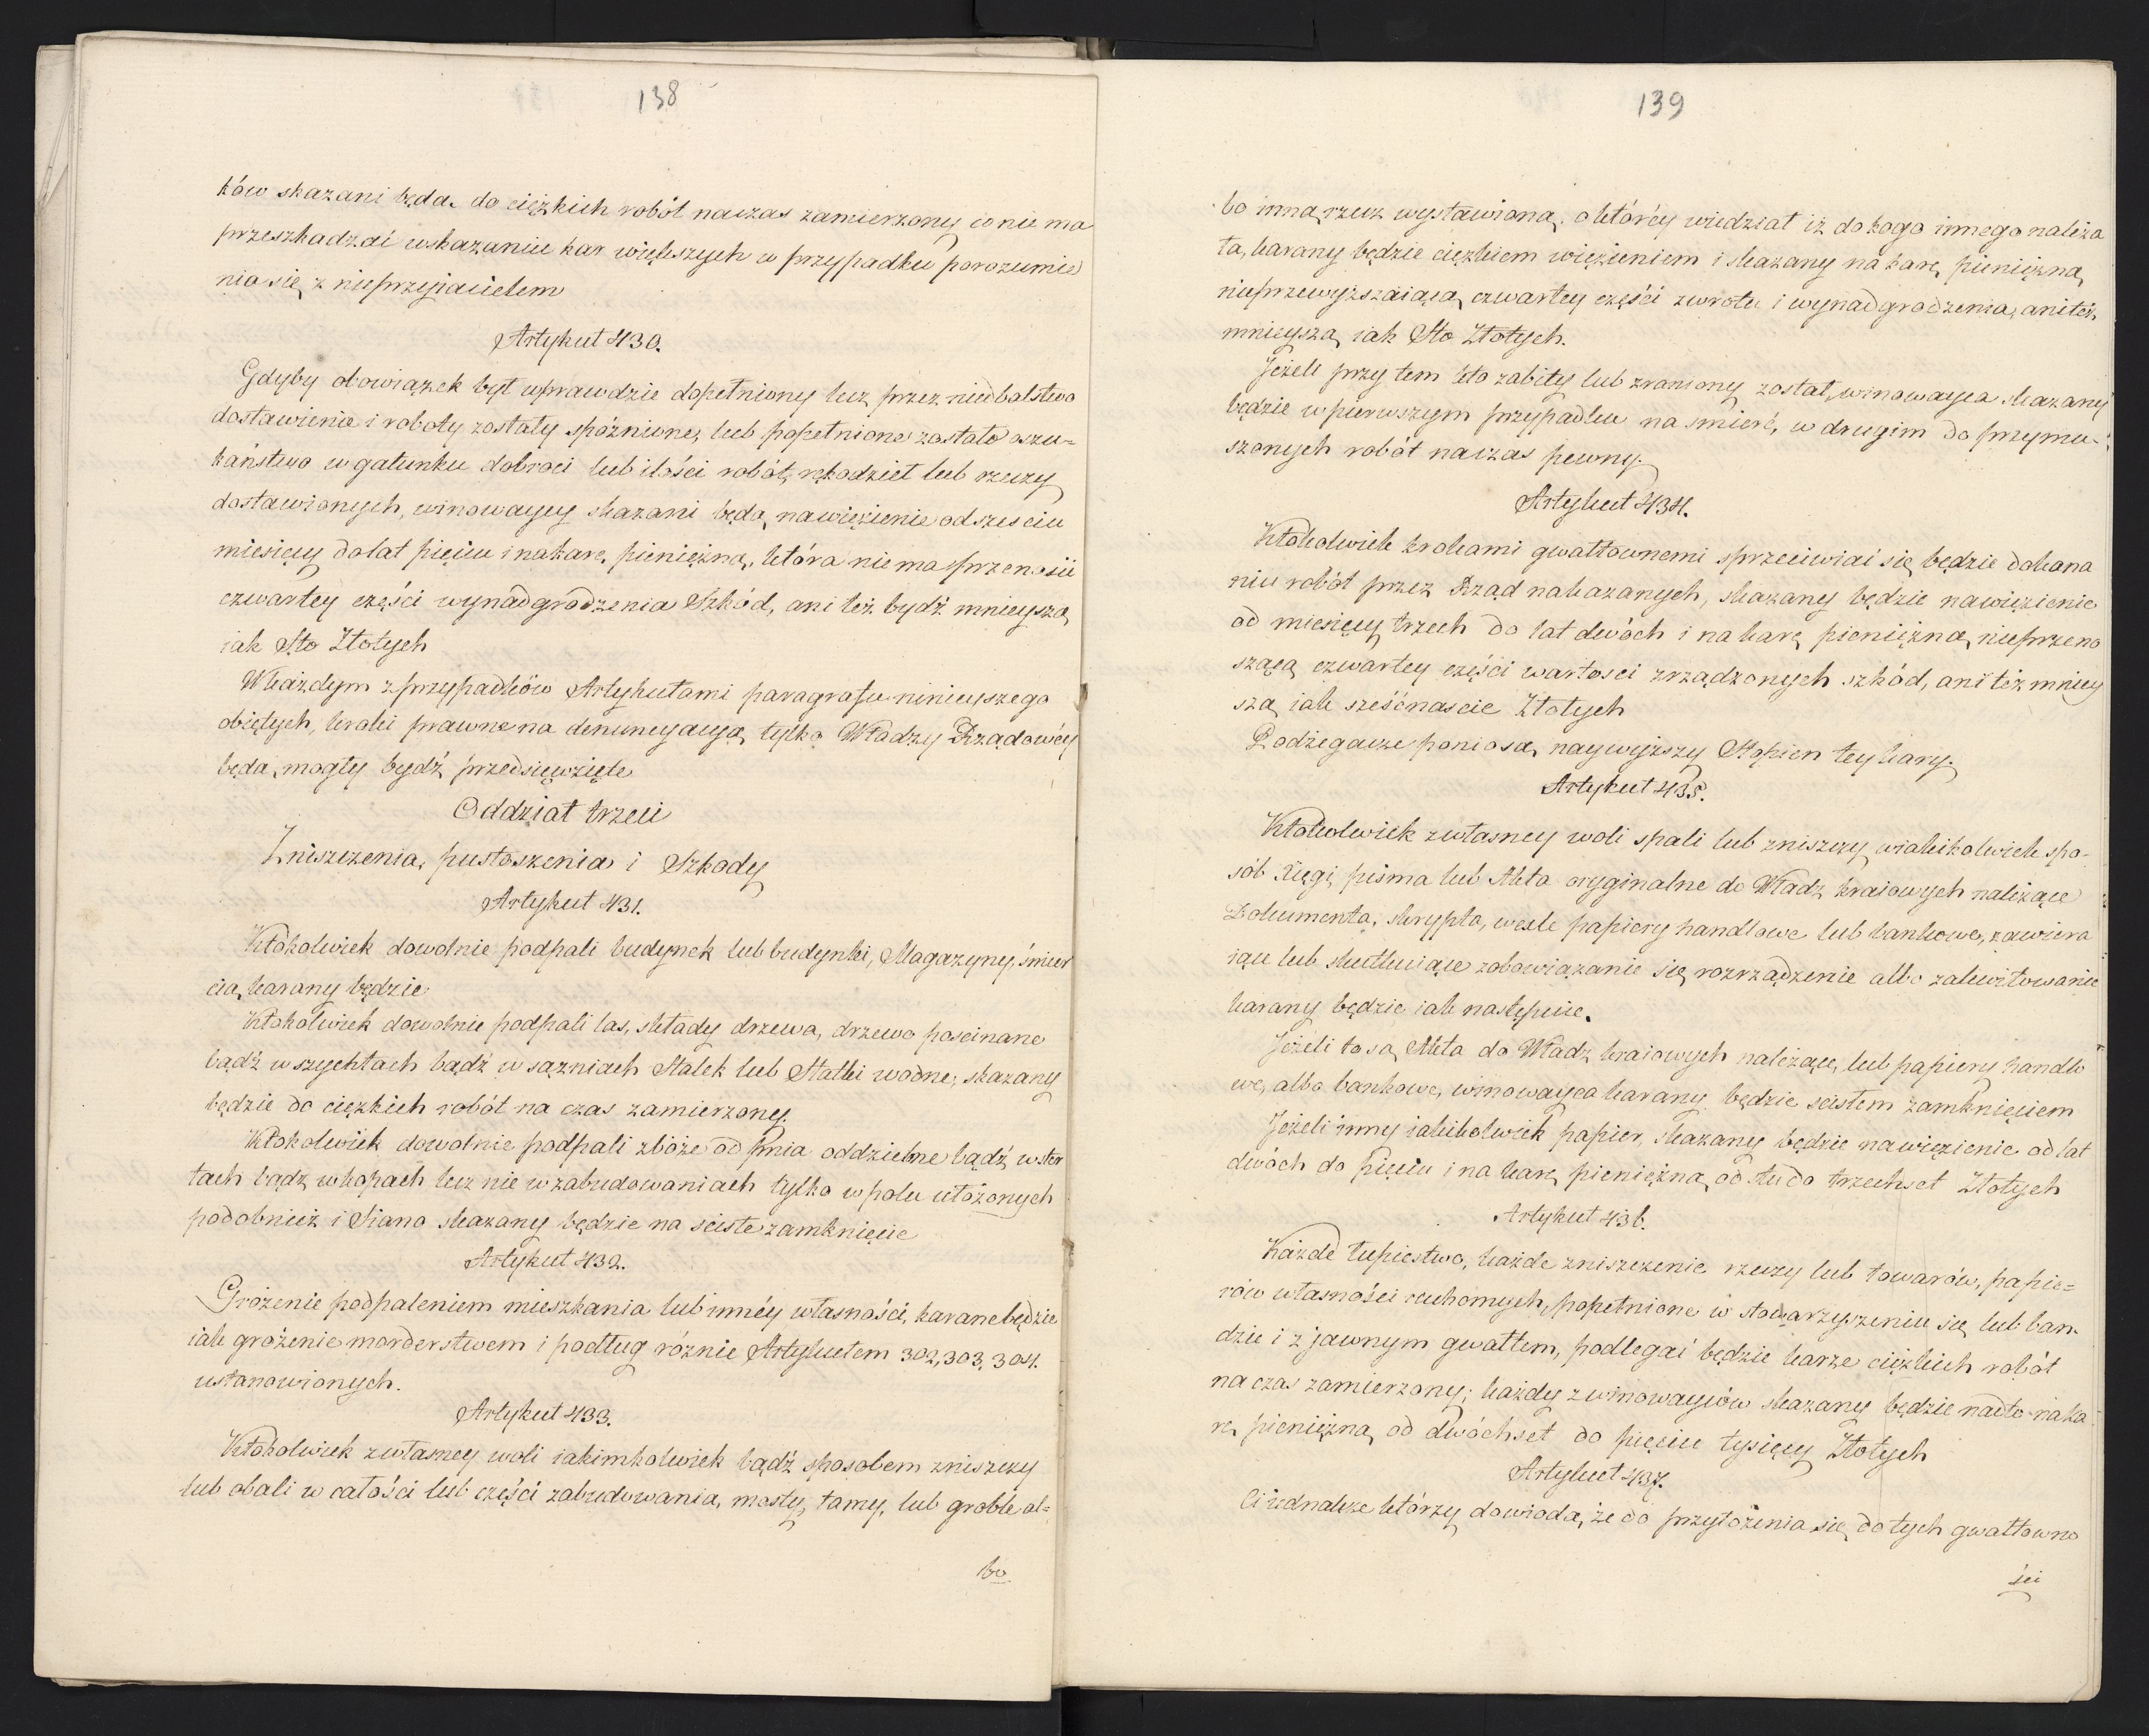 138
ków skazani będą do ciężkich robót naczas zamierzony co nie ma
przeszkadzać wskazaniu kar większych w przypadku porozumie
nia się z nieprzyiacielem
Artykuł 430.
Gdyby obowiązek był wprawdzie dopełniony lecz przez niedbalstwo
dostawienie i roboty zostały spóznione, lub popełnione zostało oszu=
kaństwo w gatunku dobroci lub ilości robót, rękodzieł lub rzeczy
dostawionych, winowaycy skazani będą na więzienie od szesciu
miesięcy do lat pięciu i na karę pieniężną, która nie ma przenosić
czwartey części wynadgrodzenia Szkód, ani też bydź mnieysza,
iak Sto Złotych
W każdym z przypadków Artykułami paragrafu ninieyszego
obiętych, kroki prawne na denuncyacyą tylko Władzy Rządowéy
będą mogły bydź przedsięwzięte
Oddział trzeci
Zniszczenia, pustoszenia i Szkody
Artykuł 431.
Ktokolwiek dowolnie podpali budynek lub budynki, Magazyny, śmier
cią karany będzie
Ktokolwiek dowolnie podpali las, składy drzewa, drzewo poscinane
bądź w szychtach bądź w sążniach Statek lub Statki wodne, skazany
będzie do ciężkich robót na czas zamierzony.
Ktokolwiek dowolnie podpali zboże od pnia oddzielne bądź w ster
tach bądź w kopach lecz nie w zabudowaniach tylko w polu ułożonych
podobnież i Siana skazany będzie na sciste zamknięcie
Artykuł 432.
Grożenie podpaleniem mieszkania lub innéy własności, karane będzie
iak grożenie morderstwem i podług różnic Artykułem 302, 303, 304.
ustanowionych.
Artykuł 433.
Ktokolwiek z własney woli iakimkolwiek bądź sposobem zniszczy
lub obali w całości lub części zabudowania, mosty, tamy, lub groble al=
bo
139
bo inną rzecz wystawioną, o któréy wiedział iż do kogo innego należa
ła, karany będzie ciężkiem więzieniem i skazany na karę pieniężną,
nieprzewyższaiącą czwartey części zwrotu i wynadgrodzenia, ani téż
mnieyszą iak Sto Złotych.
Jeżeli przy tem kto zabity lub zraniony został, winowayca skazany
będzie w pierwszym przypadku na smierć, w drugim do przymu=
szonych robót naczas pewny.
Artykuł 434.
Ktokolwiek krokami gwałtownemi sprzeciwiać się będzie dokona
niu robót przez Rząd nakazanych, skazany będzie na więzienie
od miesięcy trzech do lat dwóch i na karę pieniężną, nieprzeno
szącą czwartey części wartosci zrządzonych szkód, ani też mniey
szą iak sześćnascie Złotych
Podżegacze poniosą naywyższy Stopien tey kary.
Artykuł 435.
Ktokolwiek z własney woli spali lub zniszczy w iakikolwiek spo-
sób Xięgi, pisma lub Akta oryginalne do Władz kraiowych należące
Dokumenta, skrypta, wexle papiery handlowe lub bankowe, zawiera
iące lub skutkuiące zobowiązanie się, rozrządzenie albo zakwitowanie
karany będzie iak następuie.
Jeżeli to są Akta do Władz kraiowych należące, lub papiery handlo
we, albo bankowe, winowayca karany będzie scisłem zamknięciem
Jeżeli inny iakikolwiek papier, skazany będzie na więzienie od lat
dwóch do pięciu i na karę pieniężną od stu do trzechset Złotych
Artykuł 436.
Każde łupiestwo, każde zniszczenie rzeczy lub towarów, papie=
rów własności ruchomych, popełnione w stowarzyszeniu się lub ban-
dzie i z jawnym gwałtem, podlegać będzie karze ciężkich robót
na czas zamierzony; każdy z winowayców skazany będzie nadto na ka=
rę pieniężną od dwóchset do pięciu tysięcy Złotych
Artykuł 437.
Ci iednakże którzy dowiodą, że do przyłożenia się do tych gwałtowno
ści